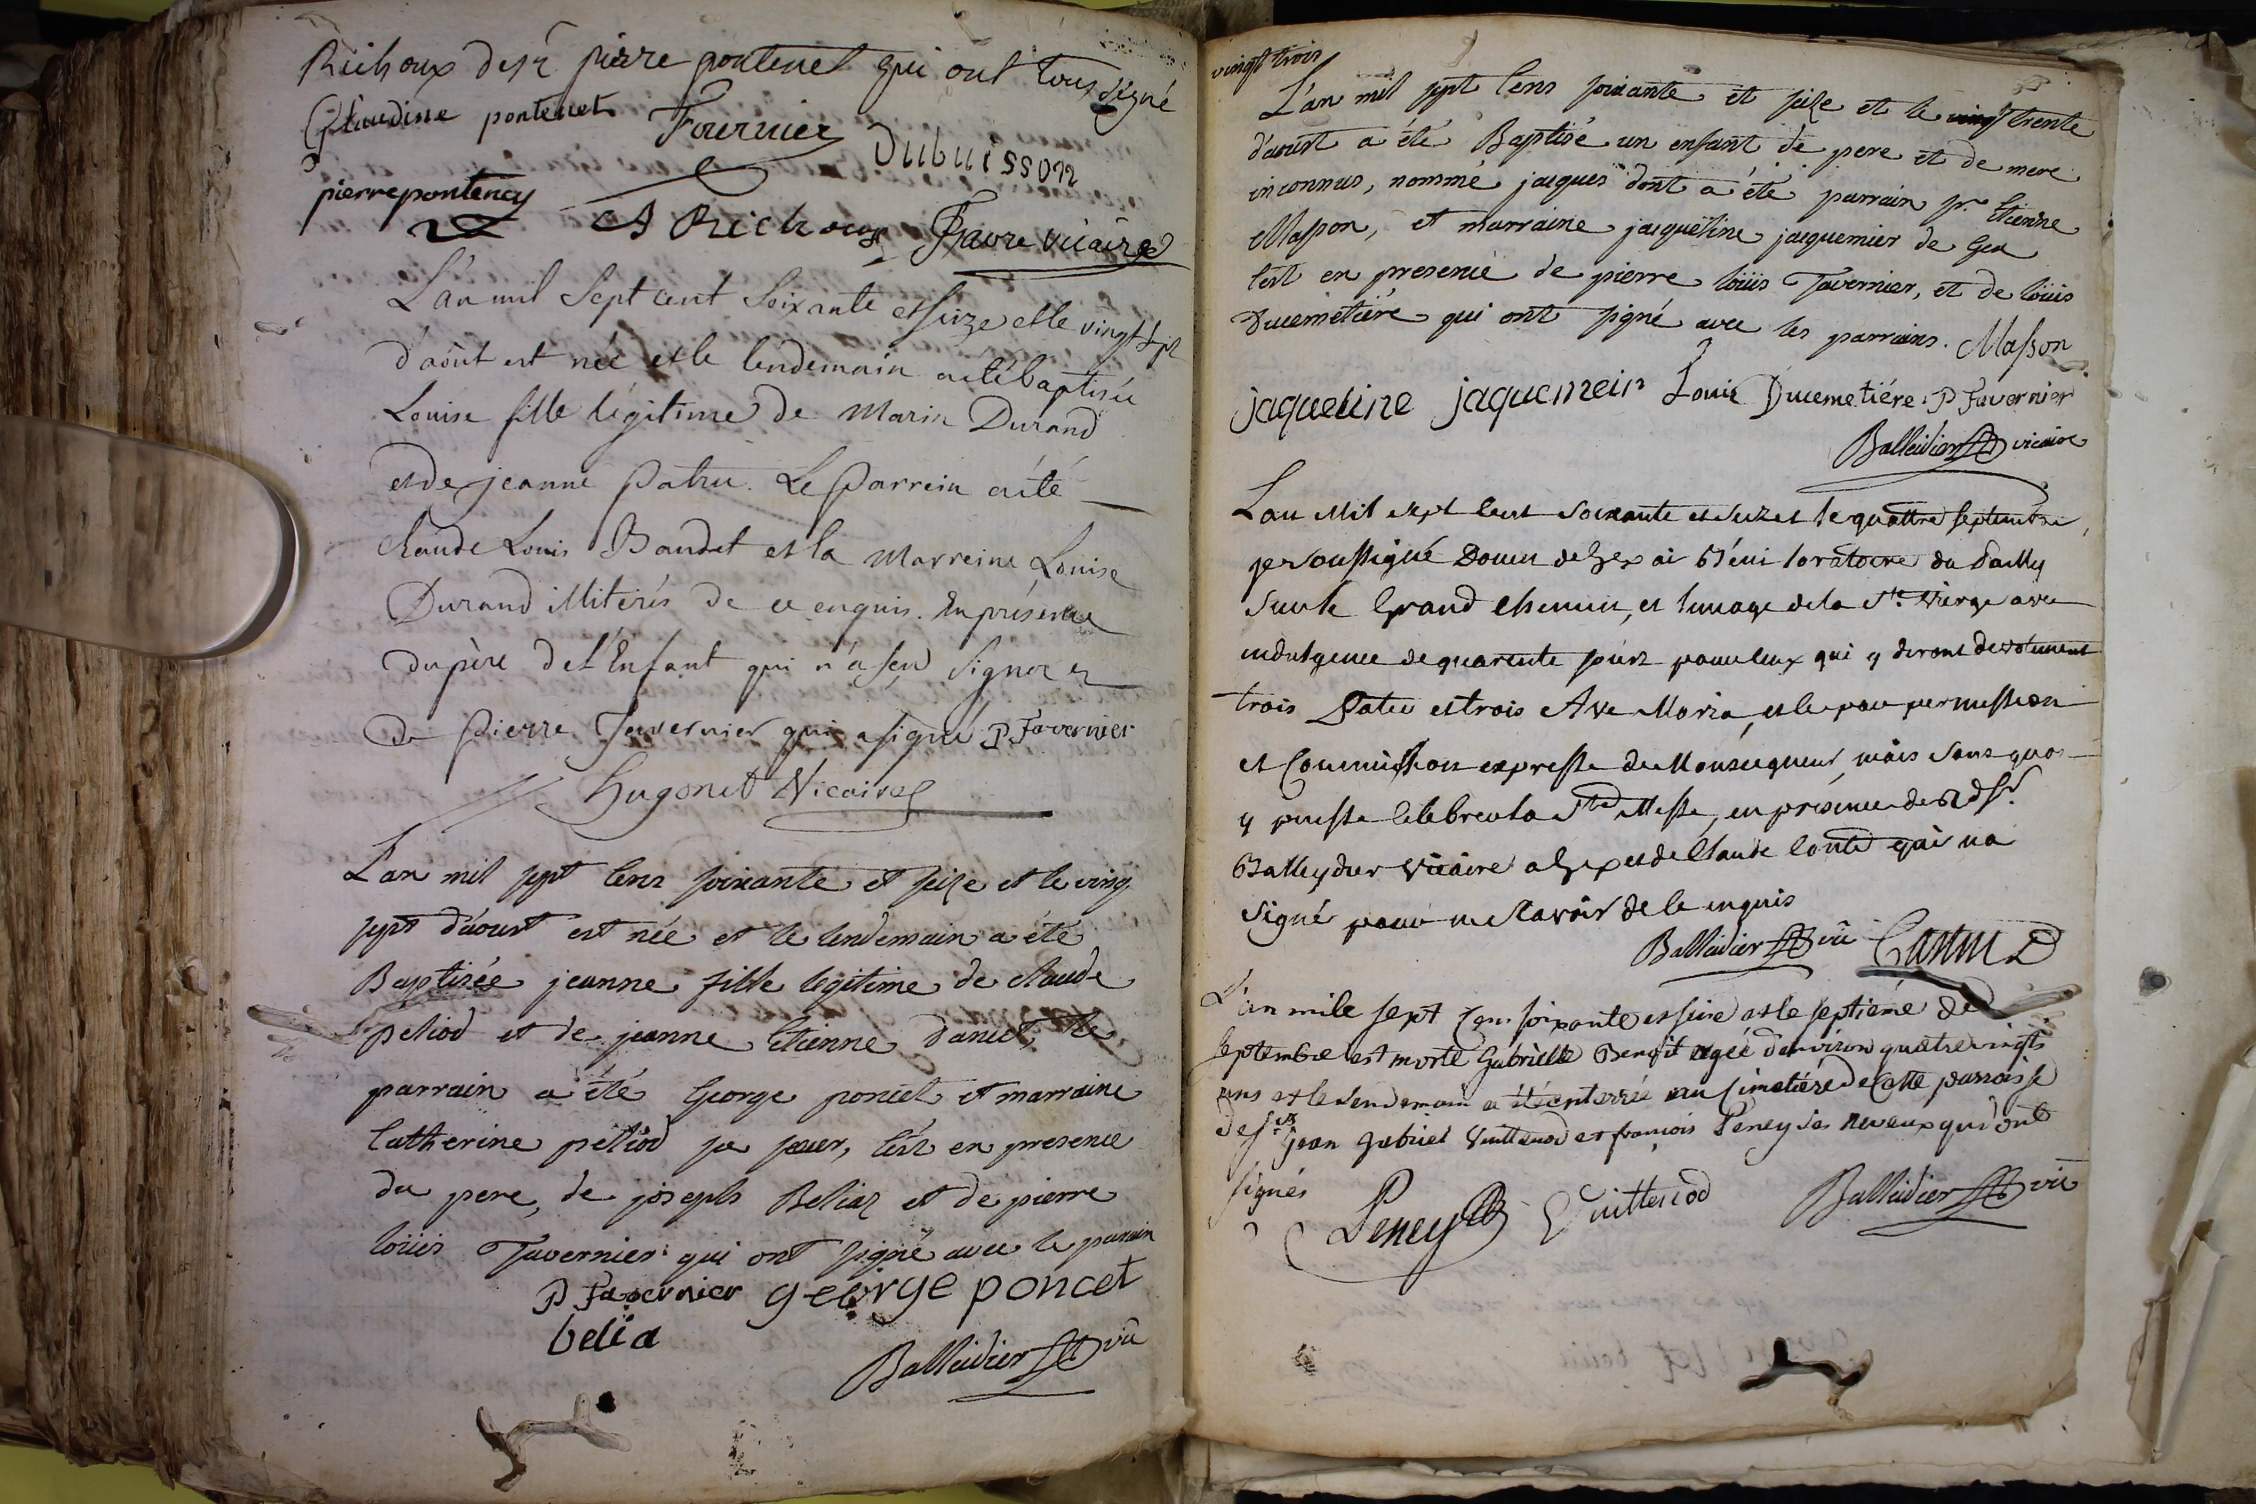 Richoux de pierre pontenet qui ont tous signé
Claudine pontenet Fournier Dubuisson
pierre pontency A Richoux Favre vicaire
L'an mil Sept cent Soixante et seize et le vingt sept
d'août est née et le lendemain a été baptisée
Louise fille légitime de Marin Durand
et de jeanne Patru. Le Parrein a été
claude Louis Baudet et la Marreine Louise
Durand illiterés de ce enquis. En présence
du père de l'Enfant qui n'a sçu Signer et
de Pierre Tavernier qui a signé P Tavernier
Hugonet Vicaire
L'an mil sept cens soixante et seize et le vingt
sept d'aoust est née et le lendemain a été
Baptisée jeanne fille legitime de claude
peliod et de jeanne Etienne danict, le
parrain a été George poncet et marraine
Catherine peliod sa soeur, c'est en presence
du pere, de joseph Beliaz et de pierre
loüis Tavernier qui ont signé avec le parrain
P Tavernier george poncet
belia
Balleidier vic
vingt trois
L'an mil sept cens soixante et seize et le vingt trente
d'aoust a été Baptisé un enfant de pere et de mere
inconnus, nommé jacques dont a été parrain sr Etienne
Masson, et marraine jacqueline jacquemier de Gex
c'est en presence de pierre loüis Tavernier, et de loüis
Ducimetiére qui ont signé avec les parrains. Masson
jaqueline jaquemeir Louis Ducimetiére P Tavernier
Balleidier vicaire
Lan Mil sept cent soixante et seize et le quattre septembre,
je soussigné Doien de Gex ai béni loratoire du
sur le Grand chemin, et limage de la Ste Vierge avec
indulgence de quarente jours pour ceux qui y diront devotement
trois Pater et trois Ave Maria, et le par permission
et Commission expresse de Monseigneur, mais sans quon
y puisse celebrer la Ste Messe, en presence de
Balleydier Vicaire a Gex et de Claude conte qui na
signé pour ne scavoir de ce enquis
Balleidier vic
L'an mile sept cens soixante et seise et le septiéme de
septembre est morte Gabrielle Benoit agée d'environ quatre vingts
ans et le lendemain a été enterrée au cimetiére de cette parroisse
jean gabriel Vuillerod et françois Peney ses neveux qui ont
signés
Peney Vuillerod Balleidier vic